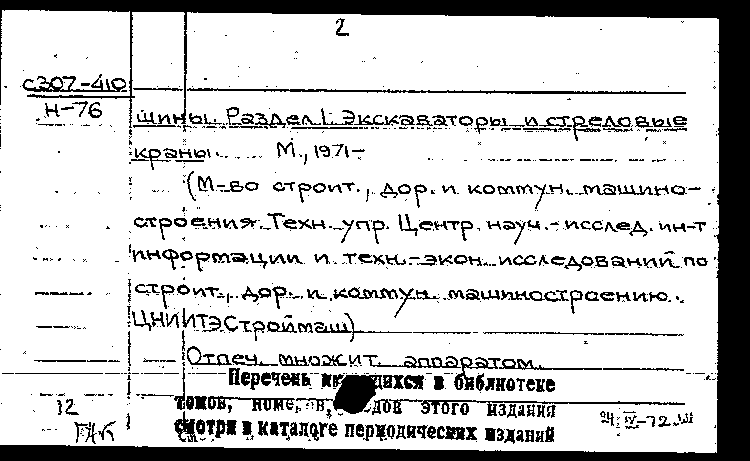 2
с307-410
Н-76
шины. Раздел 1. Экскаваторы и стреловые
краны. М., 1971-
(М-во строит., дор. и коммун. машино-
строения. Техн. упр. Центр. науч.-исслед. ин-т
информации и техн.-экон. исследований по
строит., дор. и коммун. машиностроению.
ЦНИИТЭСтроймаш)
Отпеч. множит. аппаратом.
Перечень в библиотеке
томов, этого издания
смотри в каталоге периодических изданий
12
24 IV-72